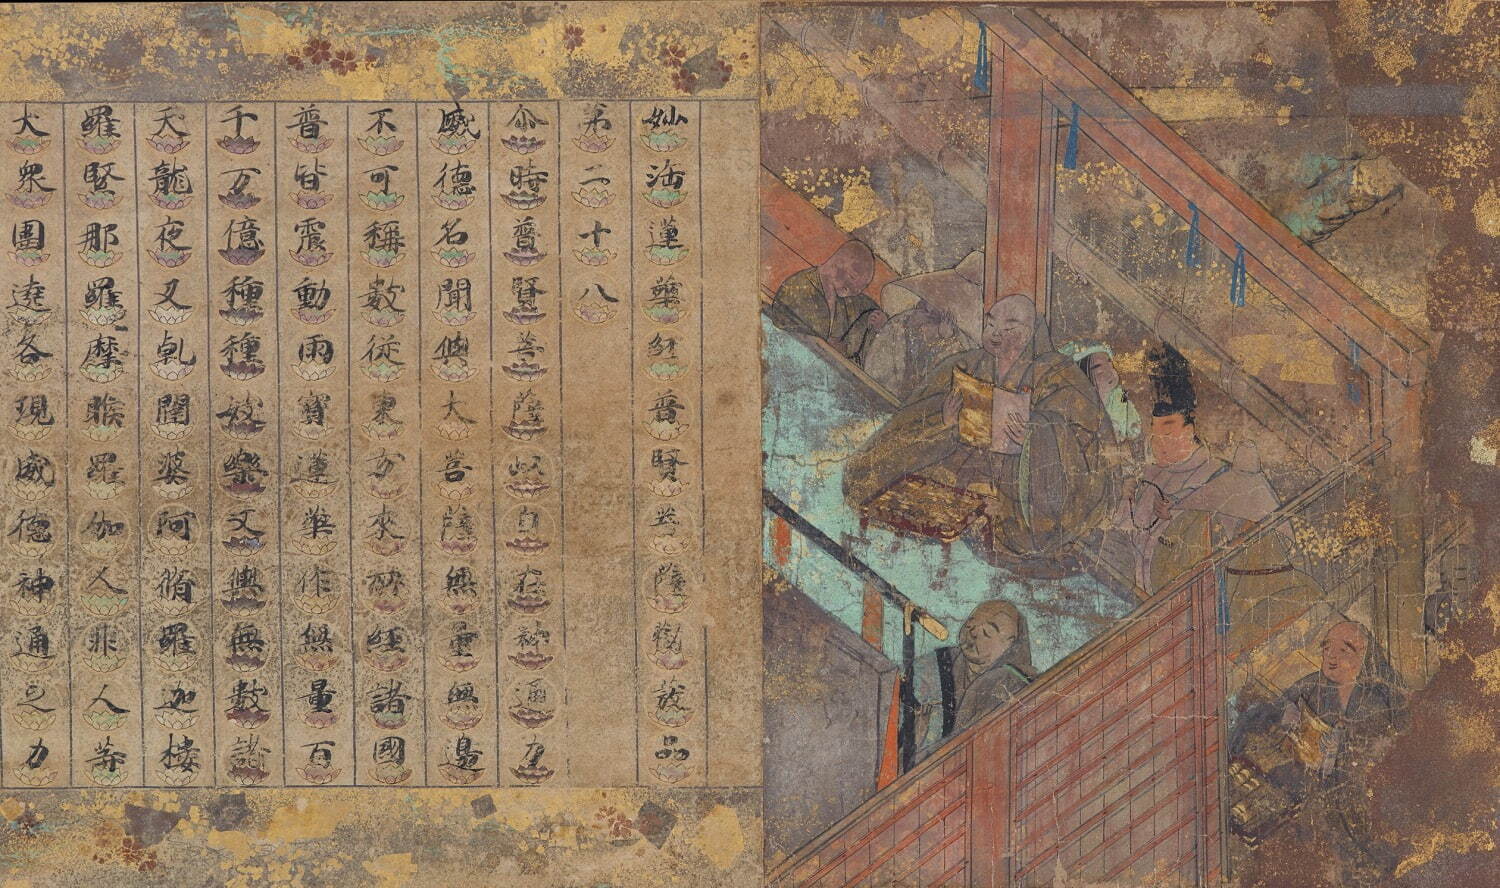 妙法蓮華経普賢菩薩勸發品
第二十八
尒時普賢菩薩以自在神通力
威德名聞與大菩薩無量無邊
不可稱數從東方來所經諸國
普皆震動雨寶蓮華作無量百
千万億種種妓樂又與無數諸
天龍夜叉乹闥婆阿脩羅迦樓
羅緊那羅摩睺羅伽人非人等
大衆圍遶各現威德神通之力